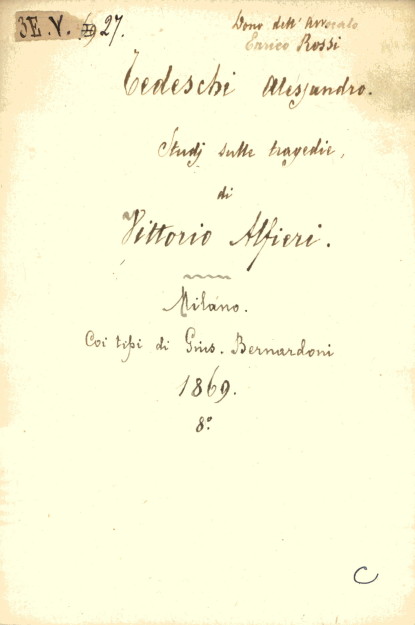 3E.V. 27.
Dono dell'Avvocato
Enrico Rossi
Tedeschi Alessandro.
Studj sulle tragedie,
di
Vittorio Alfieri.
Milano.
Coi tipi di Gius. Bernardoni
1869.
8º
C